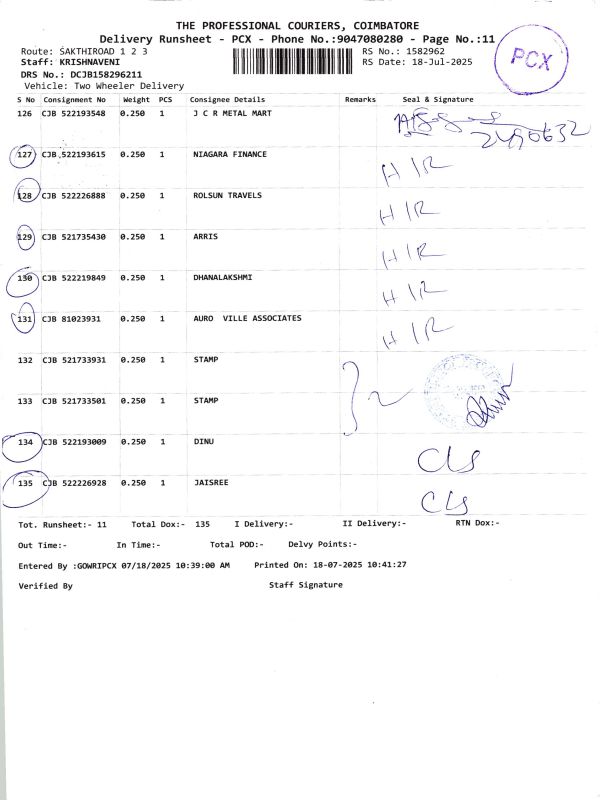 THE PROFESSIONAL COURIERS, COIMBATORE
Delivery Runsheet - PCX - Phone No.:9047080280 - Page No.:11
Route: SAKTHIROAD 1 2 3 RS No.: 1582962
Staff: KRISHNAVENI RS Date: 18-Jul-2025
PCX
DRS No.: DCJB158296211
Vehicle: Two Wheeler Delivery
S No Consignment No Weight PCS Consignee Details Remarks Seal & Signature
126 CJB 522193548 0.250 1 J C R METAL MART
127 CJB 522193615 0.250 1 NIAGARA FINANCE H/R
128 CJB 522226888 0.250 1 ROLSUN TRAVELS H/R
129 CJB 521735430 0.250 1 ARRIS H/R
130 CJB 522219849 0.250 1 DHANALAKSHMI H/R
131 CJB 81023931 0.250 1 AURO VILLE ASSOCIATES H/R
132 CJB 521733931 0.250 1 STAMP
133 CJB 521733501 0.250 1 STAMP
134 CJB 522193009 0.250 1 DINU Cls
135 CJB 522226928 0.250 1 JAISREE Cls
Tot. Runsheet:- 11 Total Dox:- 135 I Delivery:- II Delivery:- RTN Dox:-
Out Time:- In Time:- Total POD:- Delvy Points:-
Entered By :GOWRIPCX 07/18/2025 10:39:00 AM Printed On: 18-07-2025 10:41:27
Verified By Staff Signature